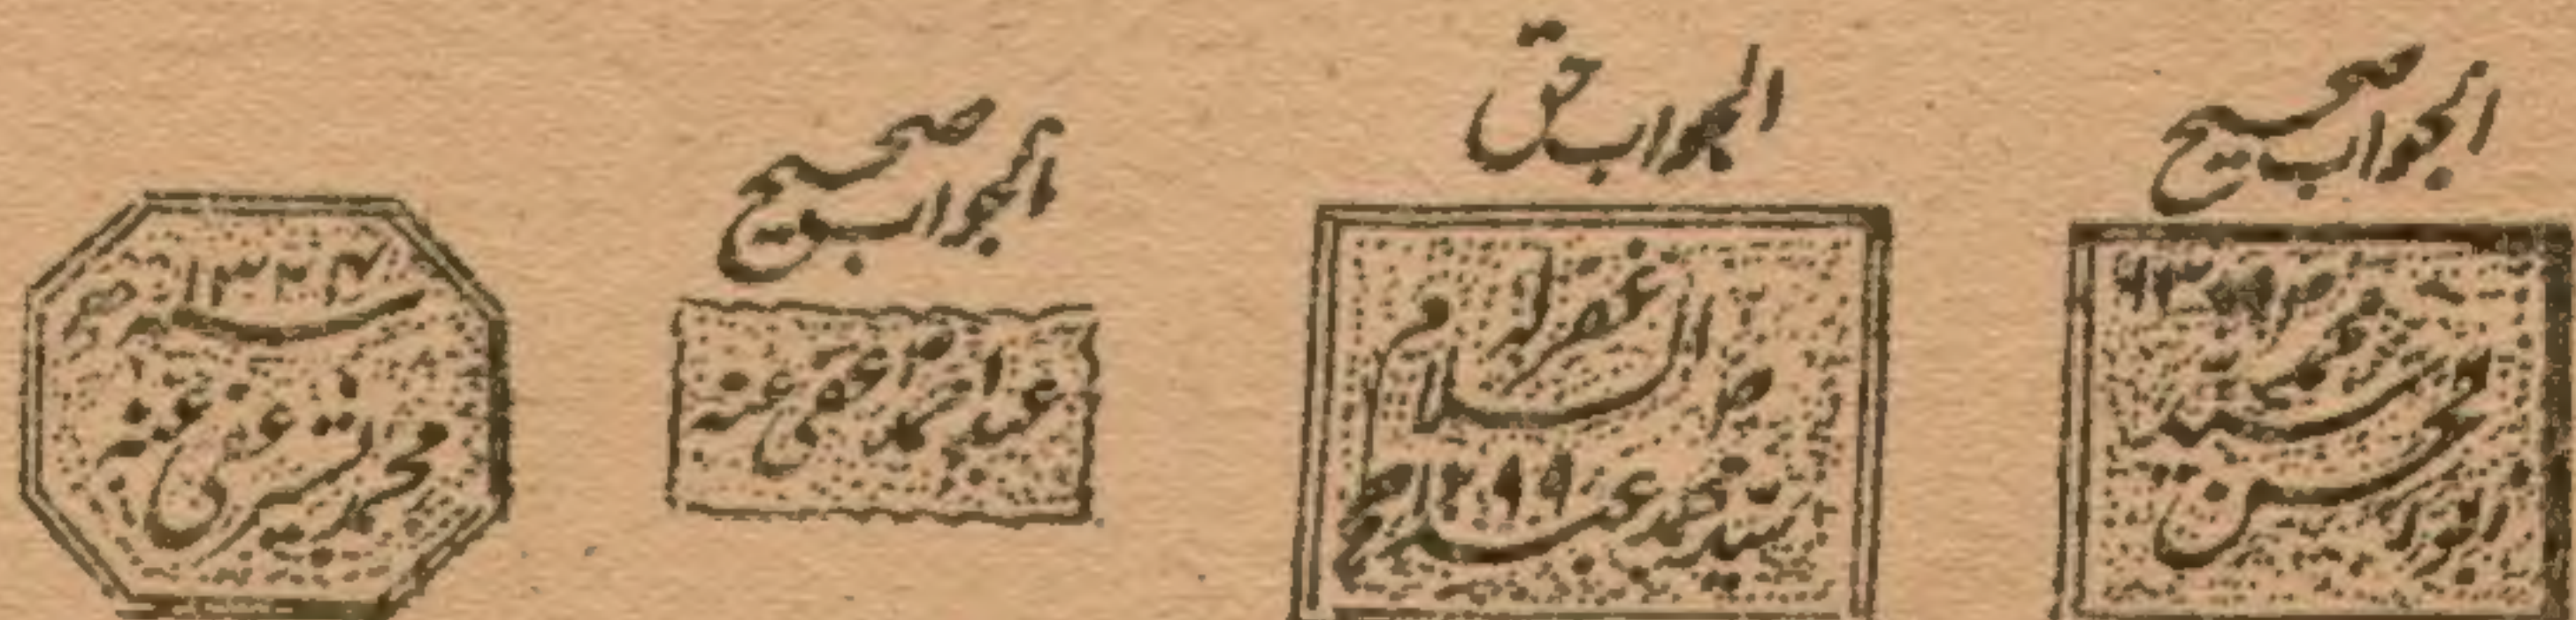 الجواب صحیح
محمد
ابو الحسن
الجواب حق
سید محمد عبد السلام غفرله
۱۲۹۹
الجواب صحیح
عبد احمد عفی عنه
۱۳۲۴
محمد بشیر عفی عنه